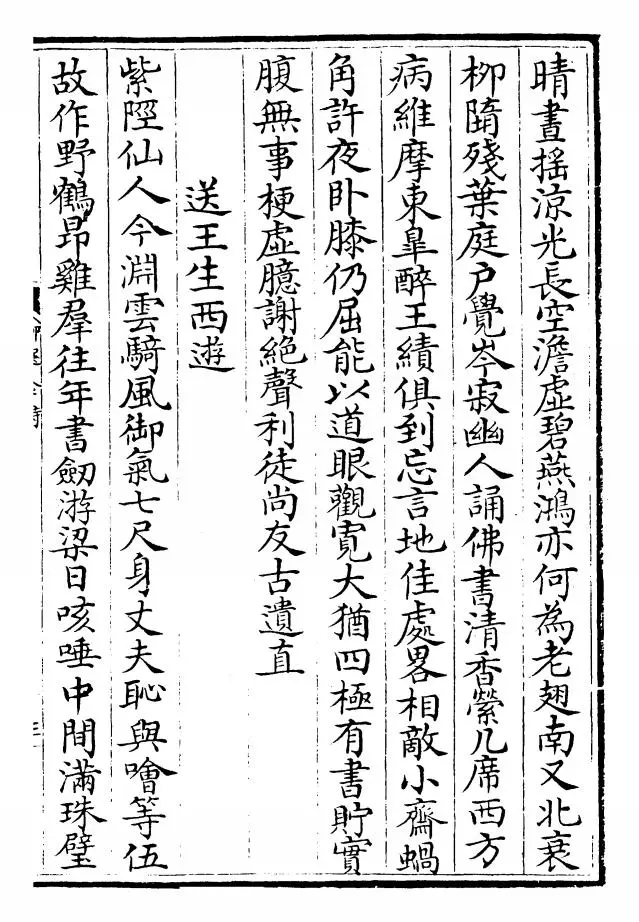 晴晝揺涼光長空澹虛碧燕鴻亦何為老翅南又北衰
柳隨殘葉庭戶覺岑寂幽人誦佛書清香縈几席西方
病維摩東臯醉王績俱到忘言地佳處畧相敵小齋蝸
角許夜卧膝仍屈能以道眼觀寛大猶四極有書貯實
腹無事梗虛臆謝絶聲利徒尚友古遺直
送王生西遊
紫陘仙人今淵雲騎風御氣七尺身丈夫恥與噲等伍
故作野鶴昂雞羣往年書劒游梁日咳唾中間滿珠璧